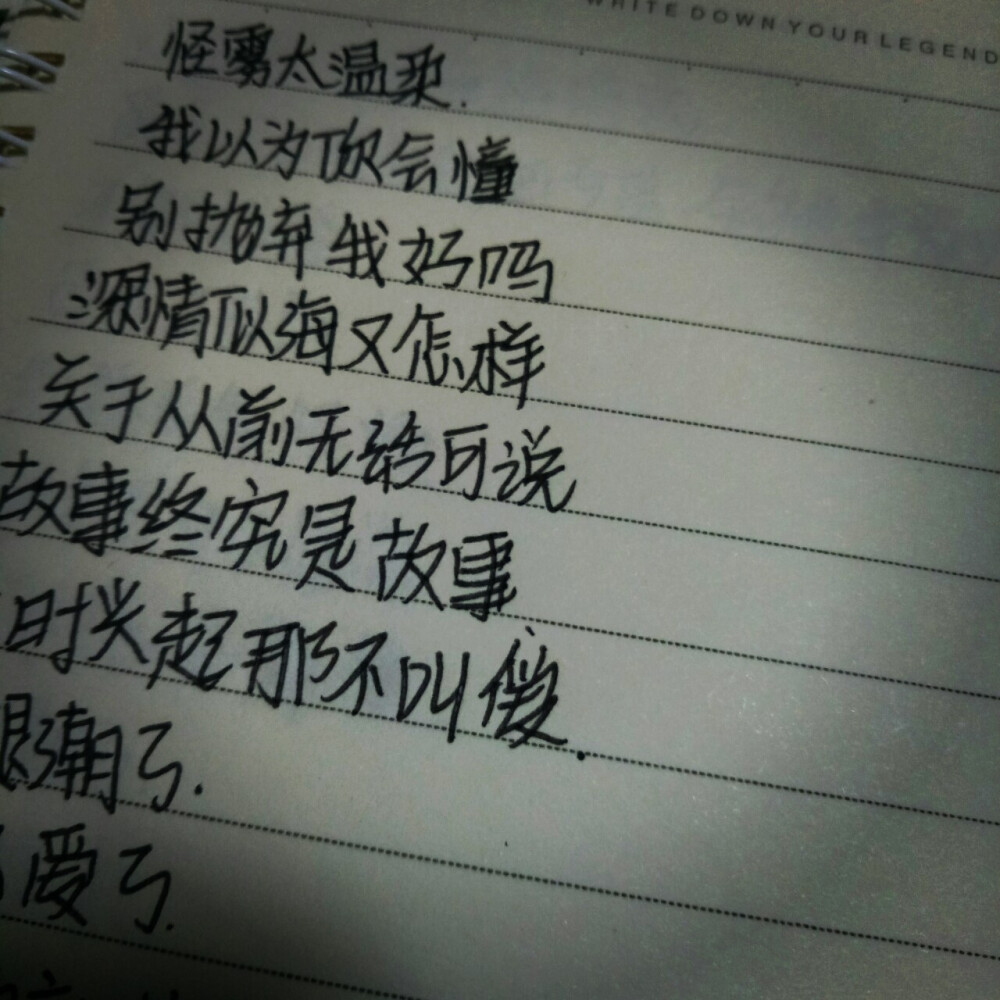 WRITE DOWN YOUR LEGEND
怪雾太温柔.
我以为你会懂
别抛弃我好吗
深情似海又怎样
关于从前无话可说
故事终究是故事
时兴起那不叫爱.
眼潮了.
爱了.